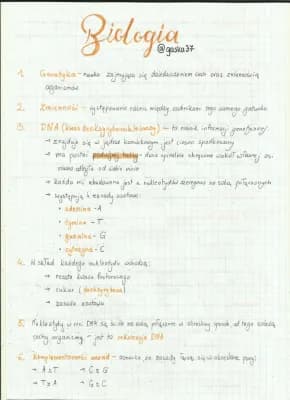 Biologia
@gaska37
1. Genetyka - nauka zajmująca się dziedziczeniem cech oraz zmiennością
organizmów
2. Zmienność - występowanie różnic między osobnikami tego samego gatunku
3. DNA (kwas deoksyrybonukleinowy) - to nośnik informacji genetycznej
→ znajduje się w jądrze komórkowym, jest ciasno upakowany
→ ma postać podwójnej helisy - dwie spiralnie skręcone wokół własnej osi
→ każda nić zbudowana jest z nukleotydów szeregowo ze sobą połączonych
→ występują 4 zasady azotowe:
• adenina - A
• tymina - T
• guanina - G
• cytozyna - C
4. W skład każdego nukleotydu wchodzą:
→ reszta kwasu fosforowego
→ cukier (deoksyryboza)
→ zasada azotowa
5. Nukleotydy w nici DNA są ściśle ze sobą połączone w określony sposób, od tego zależą
cechy organizmu - jest to sekwencja DNA
6. Komplementarność zasad - oznacza, że zasady łączą się w określone pary:
→ A ≡ T → C ≡ G
→ T ≡ A → G ≡ C